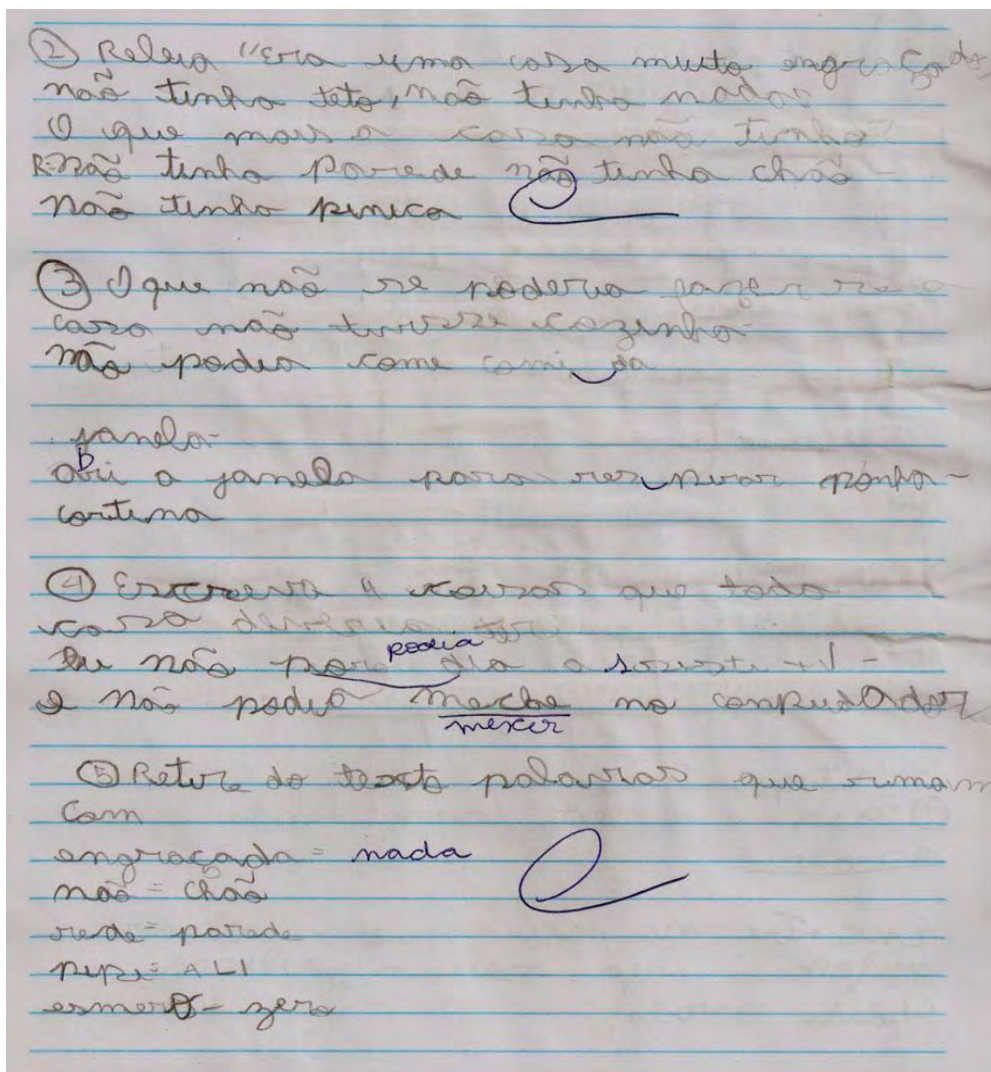 ② Releia "Era uma casa muito engraçada,
não tinha teto, não tinha nada"
O que mais a casa não tinha?
R: Não tinha parede não tinha chão
não tinha pinico
③ O que não se poderia fazer se a
casa não tivesse cozinha
não podia come comi da
janela
abri a janela para res pirar
cortina
④ Escreva 4 coisas que toda
casa deveria ter:
podia
não dia a
e não podia meche no conpudador
mexer
⑤ Retire do texto palavras que rimam
com
engraçada = nada
não = chão
rede = parede
pipi = ALI
esmero - zero